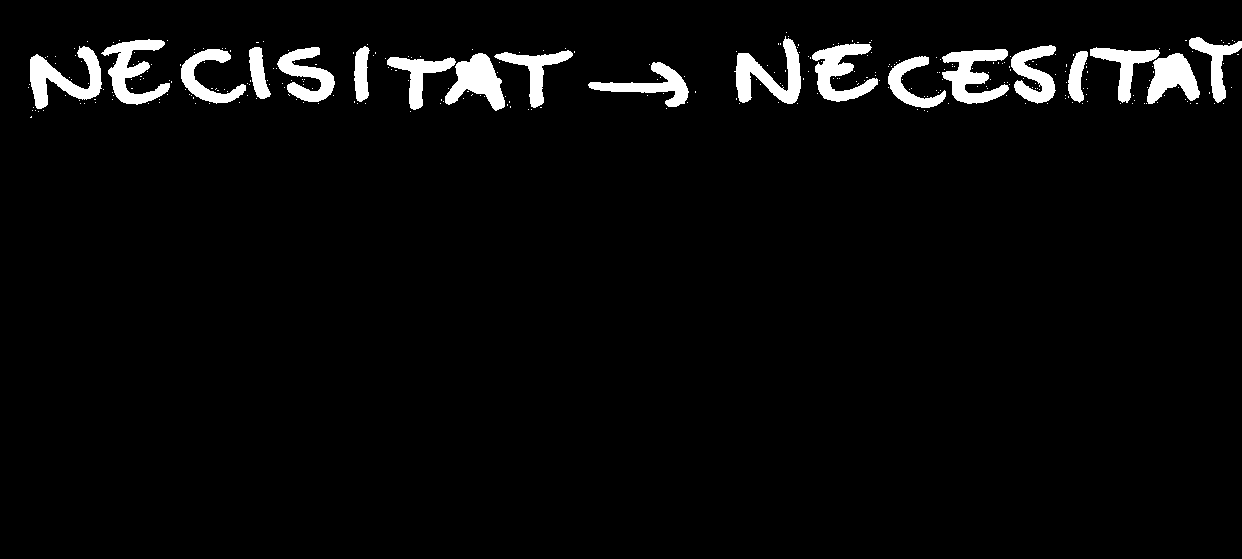 NECISITAT → NECESITAT